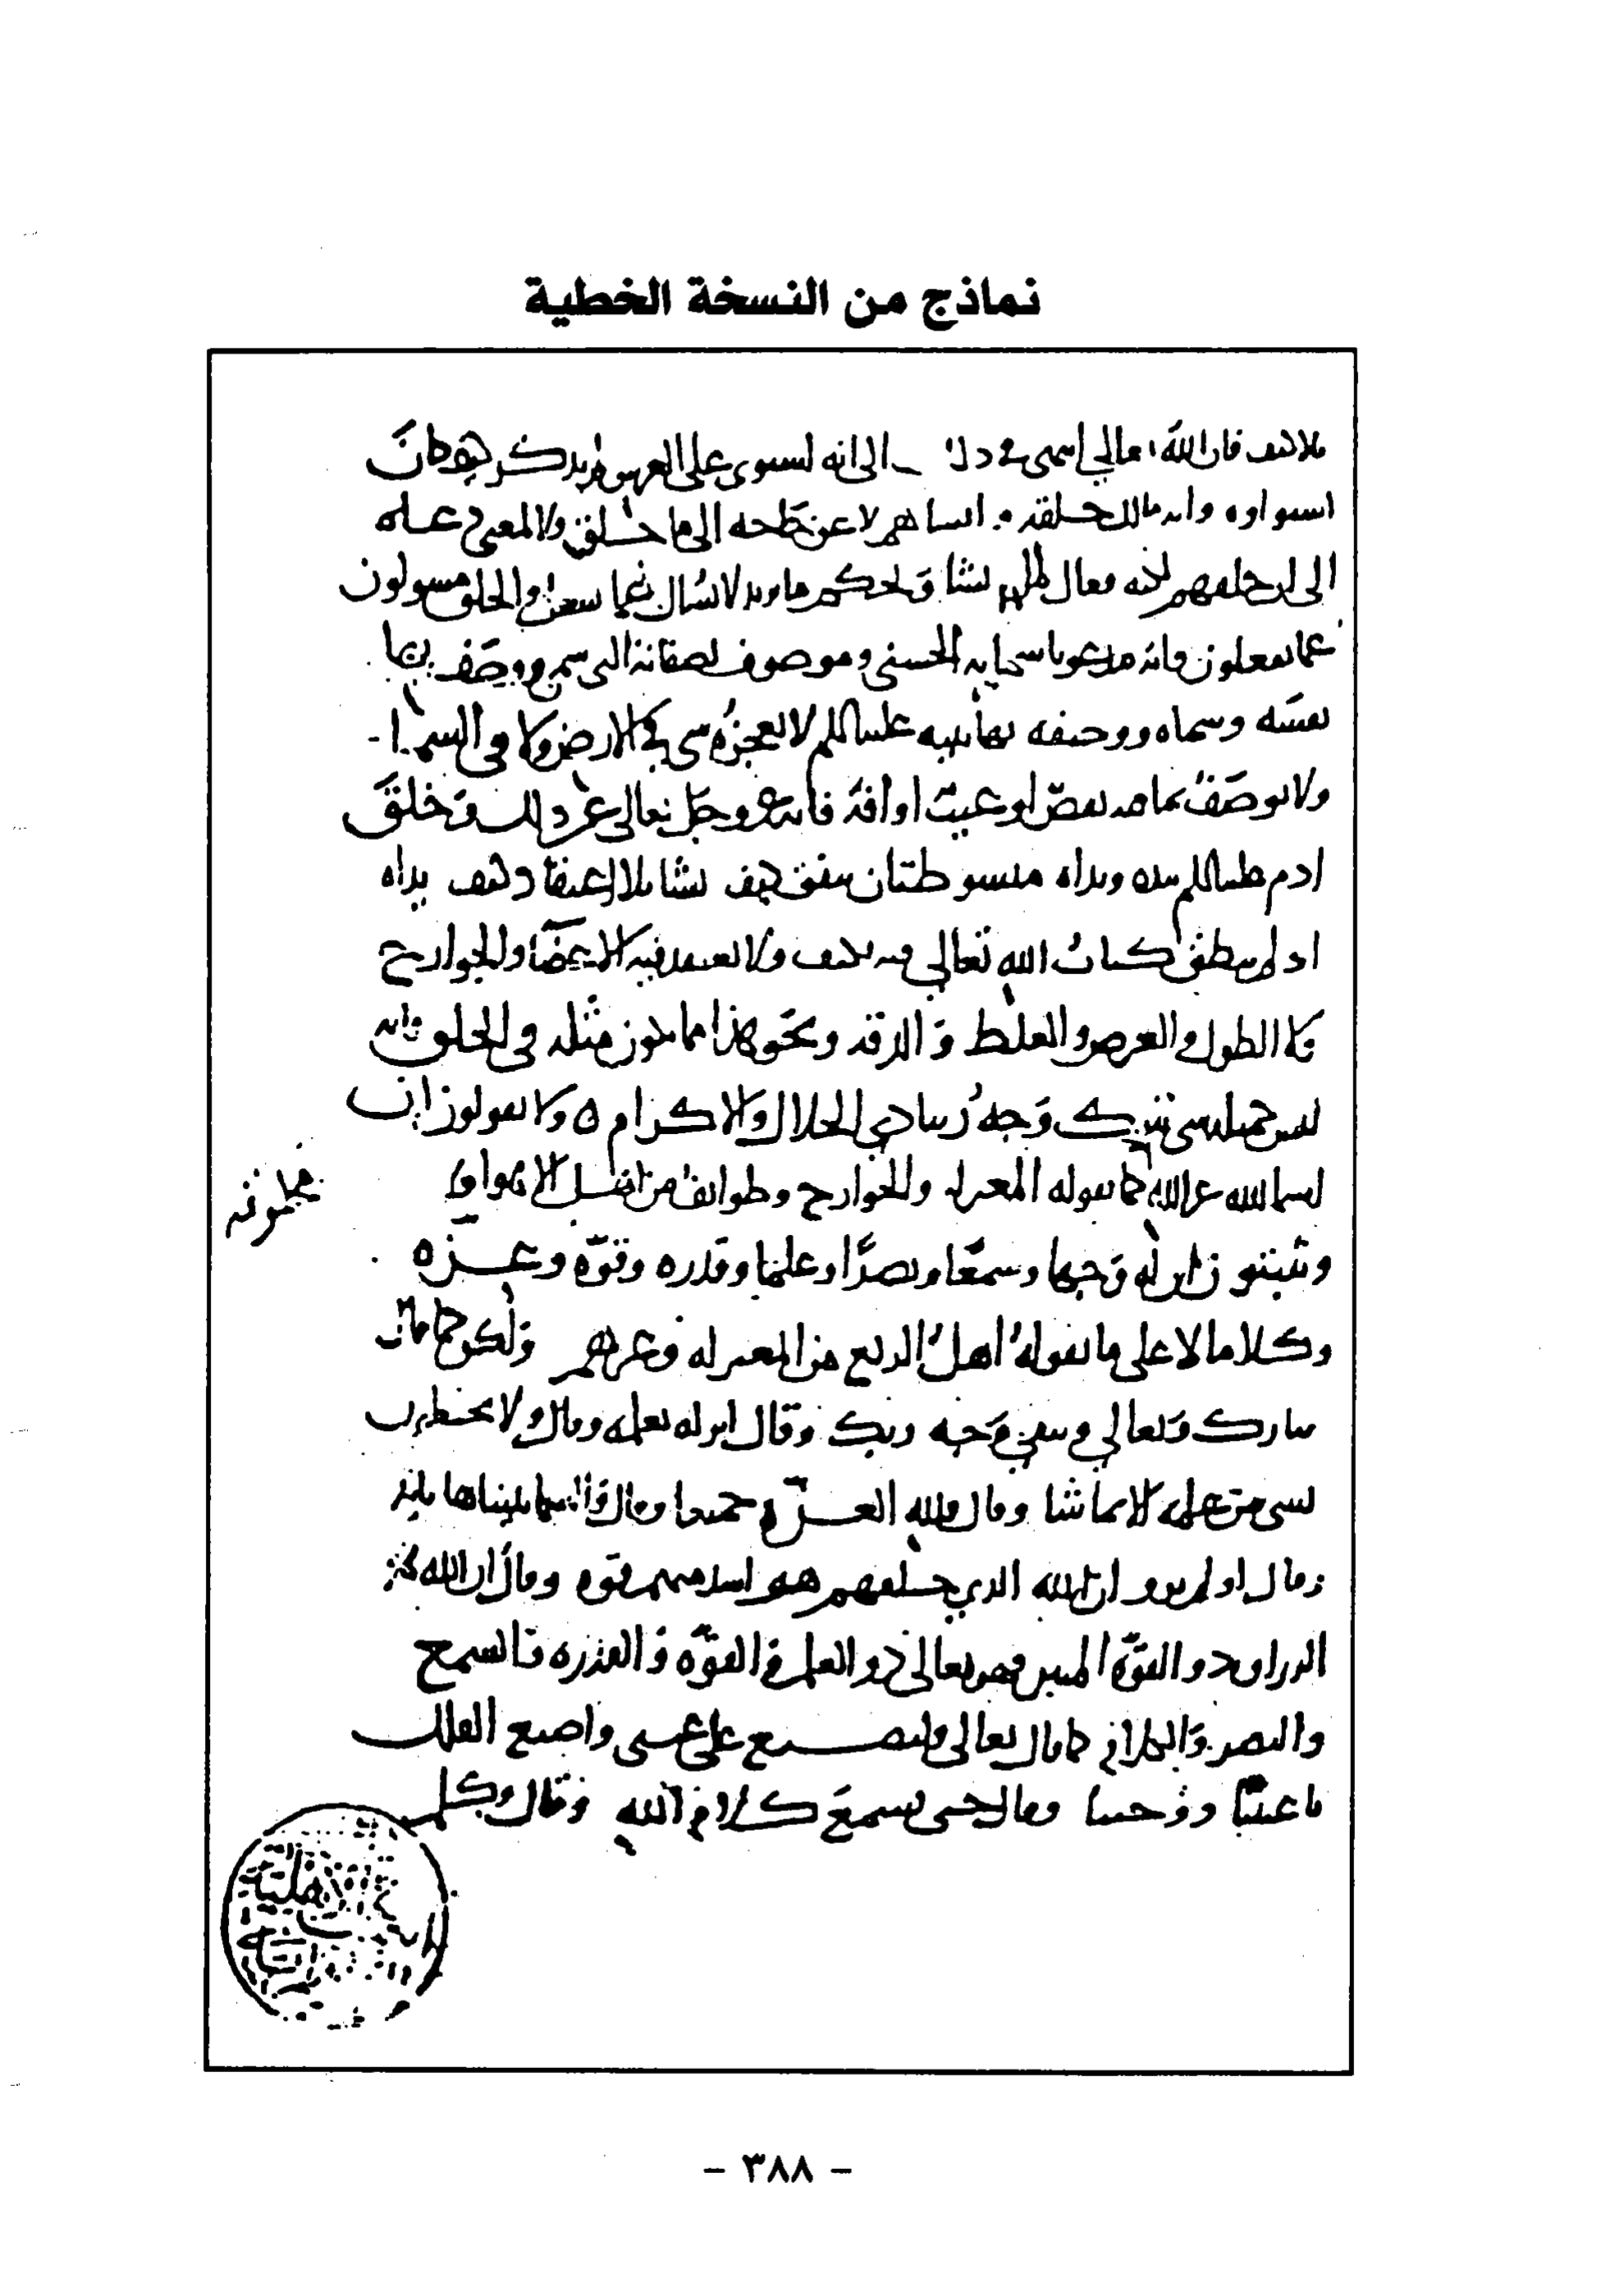 نماذج من النسخة الخطية
بلا كيف فان الله تعالى انتهى في ذلك الى انه استوى على العرش ولم يذكر كيف كان
استواوه وانه مالك خلقه وانشاهم لا عن حاجة الى ما خلق ولا لمعنى دعاه
الى ان خلقهم لكنه فعال لما يشا ويحكم ما يريد لا يسال عما يفعل والخلق مسولون
عما يفعلون وانه مدعو باسمايه الحسنى وموصوف بصفاته التي سمى ووصف بها
نفسه وسماه ووصفه بها نبيه عليه السلم لا يعجزه شي في الارض ولا في السما
ولا يوصف بما فيه نقص او عيب او افة فانه عز وجل تعالى عن ذلك وخلق
ادم عليه السلم بيده ويداه مبسوطتان ينفق كيف يشا بلا اعتقاد كيف يداه
اذ لم ينطق كتاب الله تعالى فيه بكيف ولا يعتقد فيه الاعضا والجوارح
ولا الطول والعرض والغلظ والدقة ونحو هذا مما يكون مثله في الخلق وانه
ليس كمثله شي تبرك وجه ربنا ذي الجلال والاكرام ه ولا يقولون ان
اسما الله غير الله كما يقوله المعتزله والخوارج وطوائف من اهل الاهوا
مخلوقه
ويثبتون ان له وجها وسمعا وبصرا وعلما وقدره وقوه وعزه
وكلاما لا على ما يقوله اهل الزيغ من المعتزله وغيرهم ولكن كما قال
تبارك وتعالى ويبقى وجه ربك وقال انزله بعلمه وقال ولا يحيطون
بشي من علمه الا بما شا وقال فلله العزه جميعا وقال والسما بنيناها بايد
وقال اولم يروا ان الله الذي خلقهم هو اشد منهم قوه وقال ان الله هو
الرزاق ذو القوة المتين فهو تعالى ذو العلم والقوه والقدره والسمع
والبصر والكلام كما قال تعالى ولتصنع على عيني واصنع الفلك
باعيننا ووحينا وقال حتى يسمع كلام الله وقال وكلم
- ٣٨٨ -